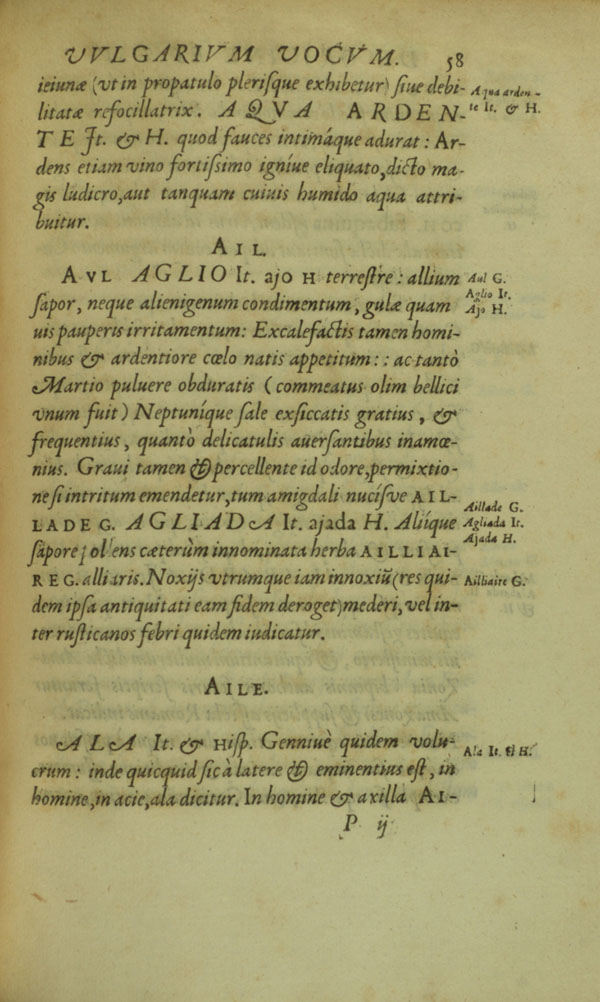 VVLGARIVM VOCVM. 58
ieiunæ (vt in propatulo plerisque exhibetur) siue debi-
litatæ refocillatrix. AQVA ARDEN-
TE It. & H. quod fauces intimáque adurat : Ar-
dens etiam vino fortissimo igníue eliquato, dicto ma-
gis ludicro, aut tanquam cuiuis humido aqua attri-
buitur.
Aqua arden-
te It. & H.
AIL.
AVL AGLIO It. ajo H terrestre : allium
sapor, neque alienigenum condimentum, gulæ quam
uis pauperis irritamentum: Excalefactis tamen homi-
nibus & ardentiore cœlo natis appetitum : : ac tantò
Martio puluere obduratis ( commeatus olim bellici
vnum fuit ) Neptuníque sale exsiccatis gratius, &
frequentius, quantò delicatulis auersantibus inamœ-
nius. Graui tamen & percellente id odore, permixtio-
ne si intritum emendetur, tum amigdali nucísve AIL-
LADE G. AGLIADA It. ajada H. Aliíque
sapore, olens cæterùm innominata herba AILLIAI-
RE G. alliaris. Noxijs vtrumque iam innoxiū (res qui-
dem ipsa antiquitati eam fidem deroget) mederi, vel in-
ter rusticanos febri quidem iudicatur.
Aul G.
Aglio It.
Ajo H.
Aillade G.
Agliada It.
Ajada H.
Ailliaire G.
AILE.
ALA It. & Hisp. Genniuè quidem volu-
crum : inde quicquid sic à latere & eminentius est, in
homine, in acie, ala dicitur. In homine & axilla AI-
Ala It. & H.
P ij